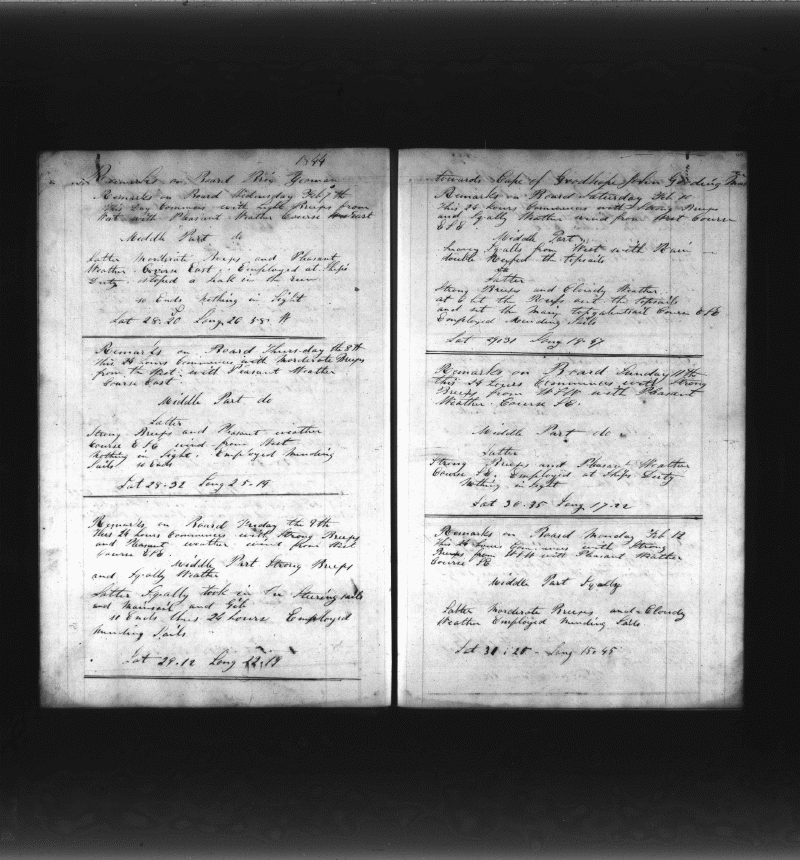 1844
Remarks on Board Brig
Remarks on Board Wednesday Feb 7th
This Day Commences with Light Breeps from
West with Pleasant Weather Course East
Middle Part do
Latter Morderate Breeps and Pleasant
Weather Course East. Employed at Ships
Duty stoped a leak in the
so Ends nothing in Sight
Lat 28.20 Long 26 38 W
Remarks on Board Thursday the 8th
This 24 hours Commences with Morderate Breeps
from the West with Pleasant Weather
Course East
Middle Part do
Latter
Strong Breeps and Pleasant weather
Course E S E wind from West
nothing in Sight. Employed Minding
Sails so Ends
Lat 28.32 Long 25.19
Remarks on Board Friday the 9th
This 24 hours Commences with Strong Breeps
and Pleasant weather wind from West
Course ESE
Middle Part Strong Breeps
and Sqally Weather
Latter Sqally took in the Steering sails
and Mainsail and Gib
so Ends this 24 hours Employed
minding Sails
Lat 29.12 Long 22.19
towards Cape of Goodhope John
Remarks on Board Saturday Feb 10
This 24 hours Commences with Strong Breeps
and Sqally Weather wind from West Course
ESE
Middle Part
heavey Sqalls from West with Rain
double Reefed the topsails
Latter
Strong Breeps and Cloudy Weather
at 6 let the Reefs out the topsails
and set the Main topgalentsail Course ESE
Employed Minding Sails
Lat 29.31 Long 19.47
Remarks on Board Sunday 11th
This 24 hours Commences with Strong
Breeps from with Pleasant
Weather. Course SE.
Middle Part do
Latter
Strong Breeps and Pleasant Weather
Course SE. Employed at Ships Duty
Nothing in Sight
Lat 30.35 Long 17.22
Remarks on Board Monday Feb 12
This 24 hours Commences with Strong
Breeps from with Pleasant Weather
Course SE
Middle Part Sqally
Latter Morderate Breeses and Cloudy
Weather Employed Minding Sails
Lat 31.28 Long 15.45